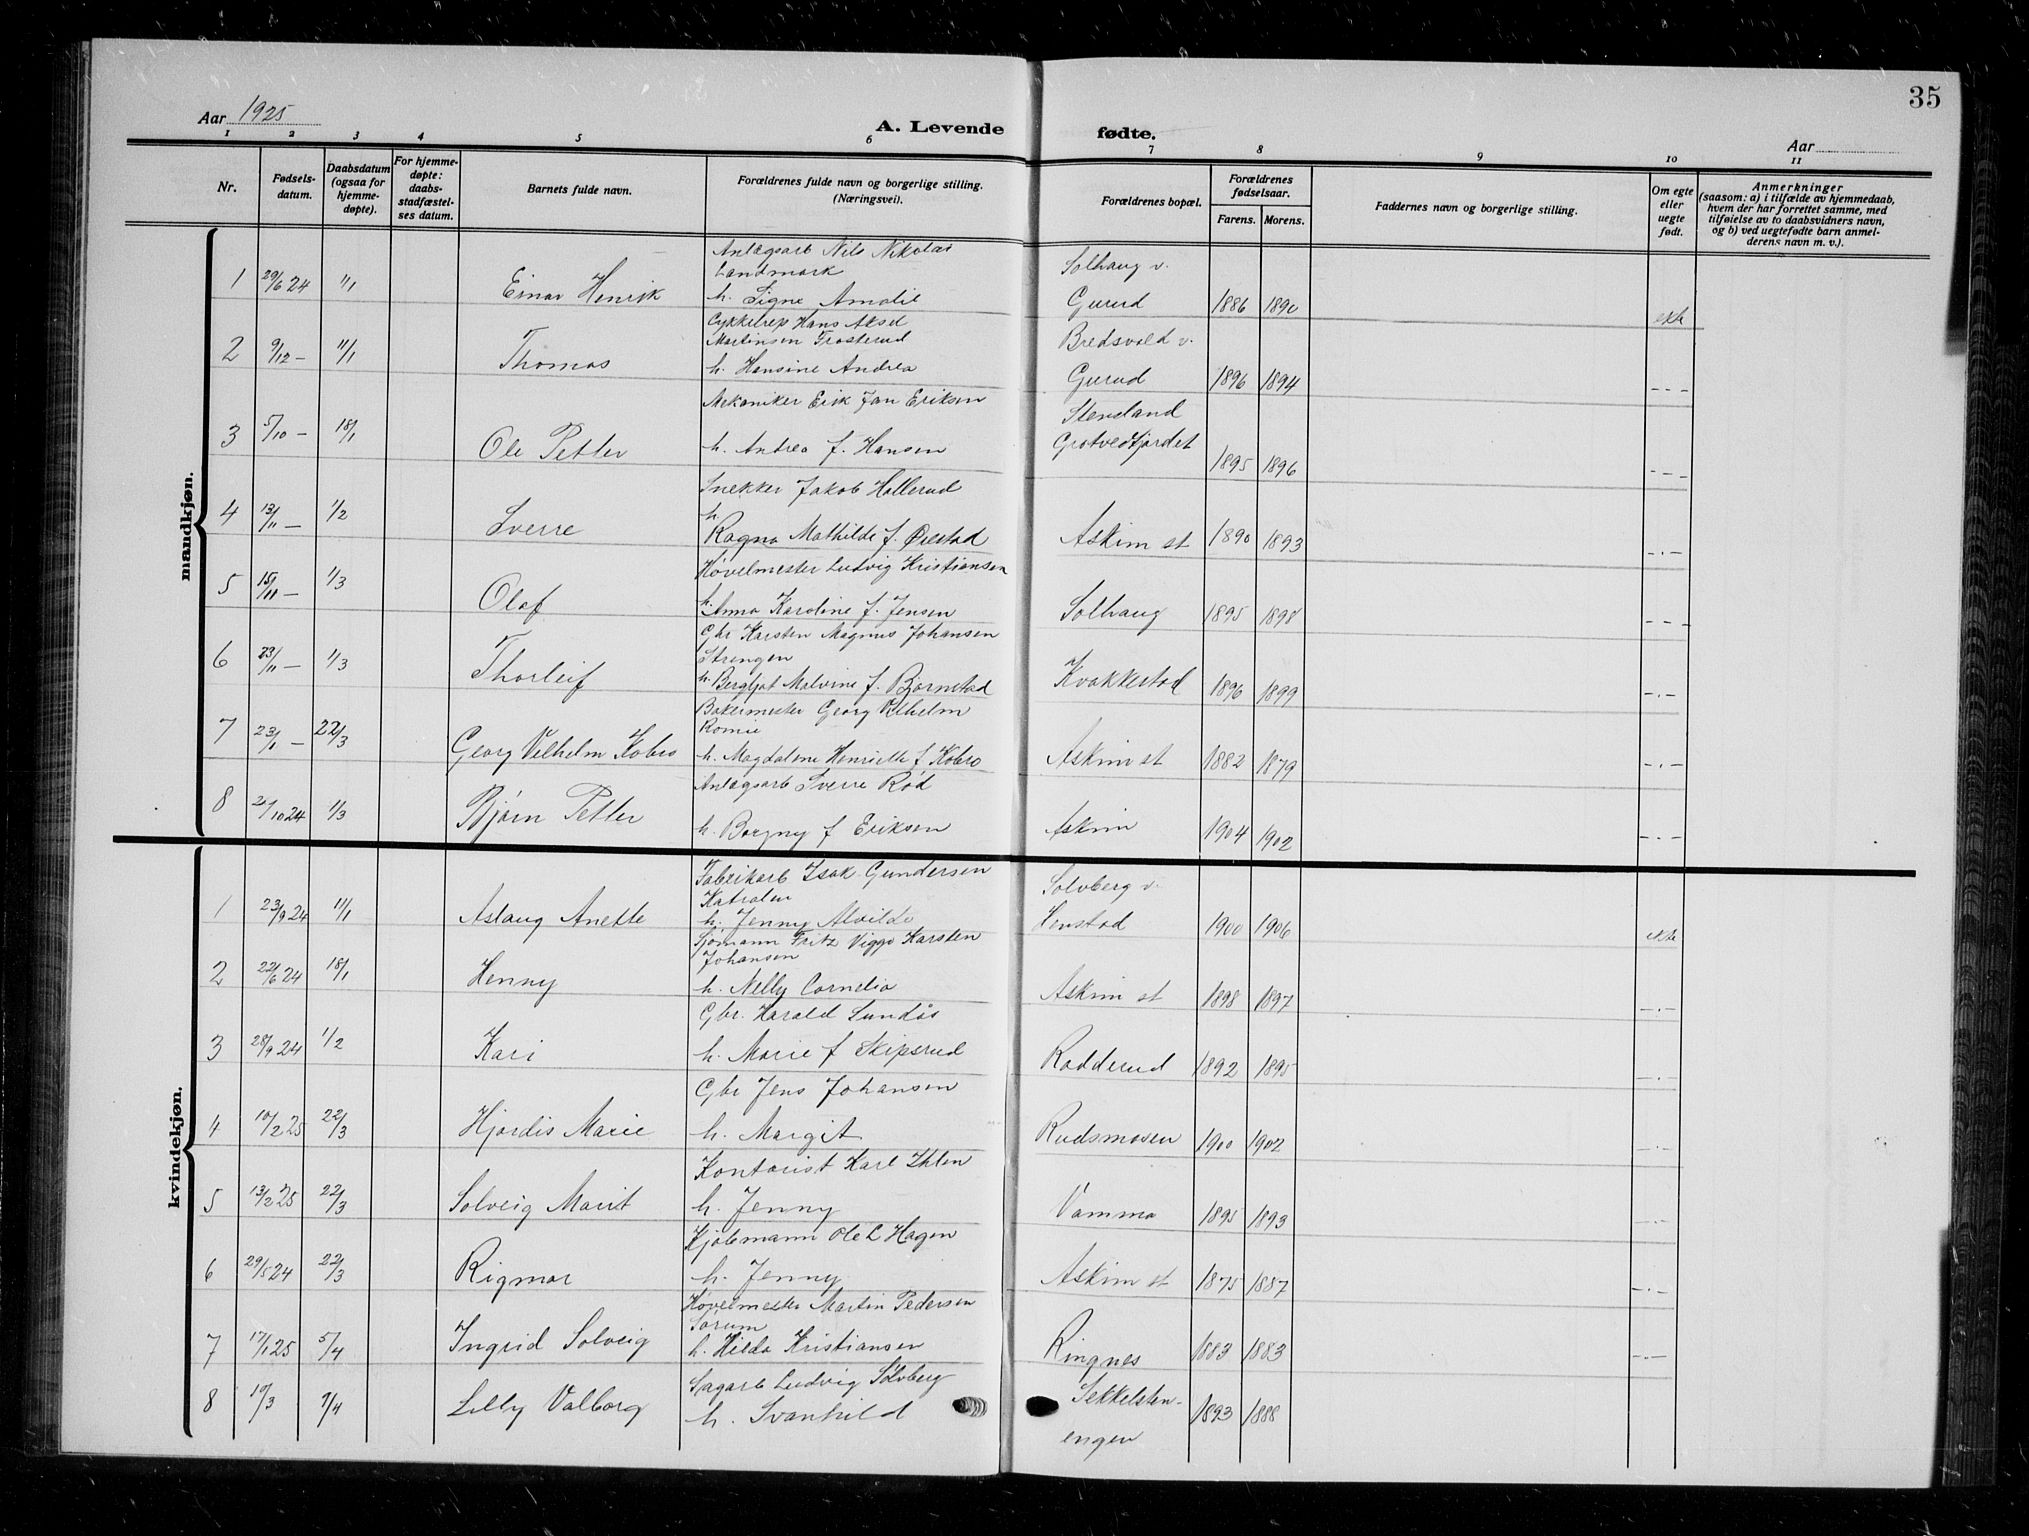 35
Aar 1925
A. Levende fødte.
Aar
1 2 3 4 5 6 7 8 9 10 11
Nr.
Fødsels-datum.
Daabsdatum (ogsaa for hjemme-døpte).
For hjemme-døpte: daabs-stadfæstel-ses datum.
Barnets fulde navn.
Forældrenes fulde navn og borgerlige stilling. (Næringsvei).
Forældrenes bopæl.
Forældrenes fødselsaar.
Farens. Morens.
Faddernes navn og borgerlige stilling.
Om egte eller uegte født.
Anmerkninger
(saasom: a) i tilfælde av hjemmedaab,
hvem der har forrettet samme, med
tilføielse av to daabsvidners navn,
og b) ved uegtefødte barn anmel-
derens navn m. v.).
mandkjøn.
Anlægsarb Nils Nikolai
Landmark
Solhaug v.
1 29/6 24 1/1 Einar Henrik h. Signe Amalie Gurud 1886 1890 ekte
Cykkelrep Hans Aksel
Martinsen Frosterud
Bredsvold v.
2 9/12 – 11/1 Thomas h. Hansine Andrea Gurud 1896 1894 – – –
Mekaniker Erik Jan Eriksen
Stensland
3 5/10 – 18/1 Ole Petter h. Andrea f. Hansen Grotvedtjordet 1895 1896 – – –
Snekker Jakob Hallerud
h.
4 13/11 – 1/2 Sverre Ragna Mathilde f. Ørestad Askim st 1890 1893 – . –
Høvelmester Ludvig Kristiansen
5 15/11 – 1/3 Olaf h. Anna Karoline f. Jensen Solhaug 1895 1898 – – –
Gbr Karsten Magnus Johansen
Strengen
6 23/11 – 1/3 Thorleif h. Bergljot Malvine f. Bjørnstad Kvakkestad 1896 1899 – . –
Bakermester Georg Vilhelm
7 23/1 – 22/3 Georg Vilhelm Kobro h. Magdalene Henriette f Kobro Askim st 1882 1879 – . –
Anlægsarb Sverre Rød
8 /10 24 1/3 Bjørn Petter h. Borgny f Eriksen Askim 1904 1902 – . –
kvindekjøn.
Fabrikarb Isak Gundersen
Solberg v.
1 23/9 24 11/1 Aslaug Anette h. Jenny Alvilde Henstad 1900 1906 ekte
Sjømann Fritz Viggo Karsten
Johansen
2 22/6 24 18/1 Henny h. Nelly Cornelia Askim st 1898 1897 – . –
Gbr. Harald Sundås
3 28/9 24 1/2 Kari h. Marie f Skipsrud Radderud 1892 1895 – . –
Gbr Jens Johansen
4 10/2 25 22/3 Hjørdis Marie h. Margit Rudsmosen 1900 1902 – . –
Kontorist Karl Ihlen
5 13/2 25 22/3 Solveig Marit h. Jenny Vamma 1895 1893 – . –
Kjøbmann Ole L Hagen
6 29/5 24 22/3 Rigmor h. Jenny Askim st 1875 1887 – . –
Høvelmester Martin Pedersen
Sørum
7 17/1 25 5/4 Ingrid Solveig h. Hilda Kristiansen Ringnes 1883 1883 – . –
Sagarb Ludvig Solberg
8 19/3 9/4 Lilly Valborg h. Svanhild Sekkelsten- 1893 1888
engen